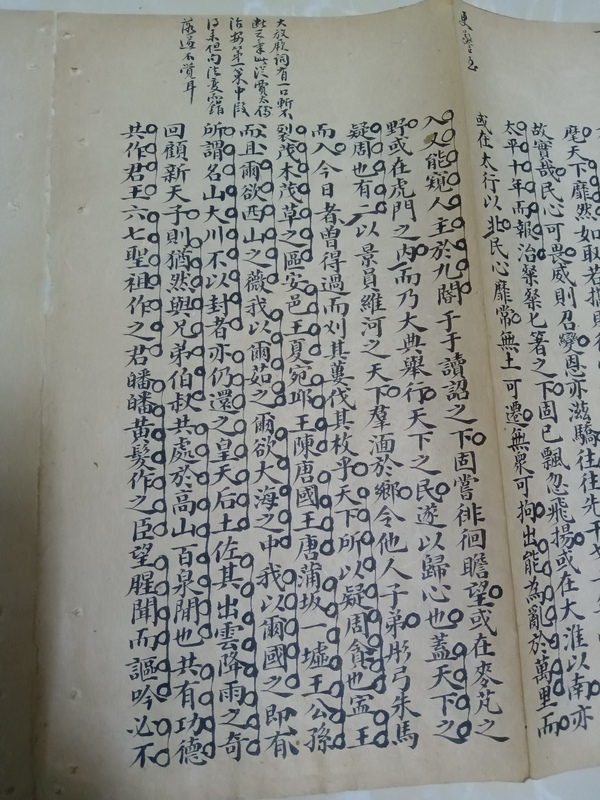 麾天下靡然如取若携則
故實哉民心可畏威則召變恩亦滋驕往往先
太平十年而報治粲粲匕箸之下固已飄忽飛揚或在大淮以南亦
或在太行以北民心靡常無土可遷無衆可拘出能為亂於萬里而
入又能窺人主於九閽于于讀詔之下固嘗徘徊瞻望或在麥芃之
野或在虎門之内而乃大典舉行天下之民遂以歸心也蓋天下之
疑周也有二以景員維河之天下羣湎於鄉令他人子弟彤弓朱馬
而入今日者曾得過而刈其蔞伐其枚乎天下所以疑周貪也盂王
裂茂木茂草之區安邑王夏宛邱王陳唐國王唐蒲坂一墟王公孫
而且爾欲西山之薇我以爾茹之爾欲大海之中我以爾國之即有
所謂名山大川不以封者亦仍還之皇天后土佐其出雲降雨之奇
回顧新天子則猶然與兄弟伯叔共處於高山百泉間也共有功德
共作君王六七聖祖作之君皤皤黃髮作之臣望腥聞而謳吟必不
大放厥詞有一口斬不
此三章皆從賈太傅
治安第一策中段
得來但句法變
落遂不覺耳